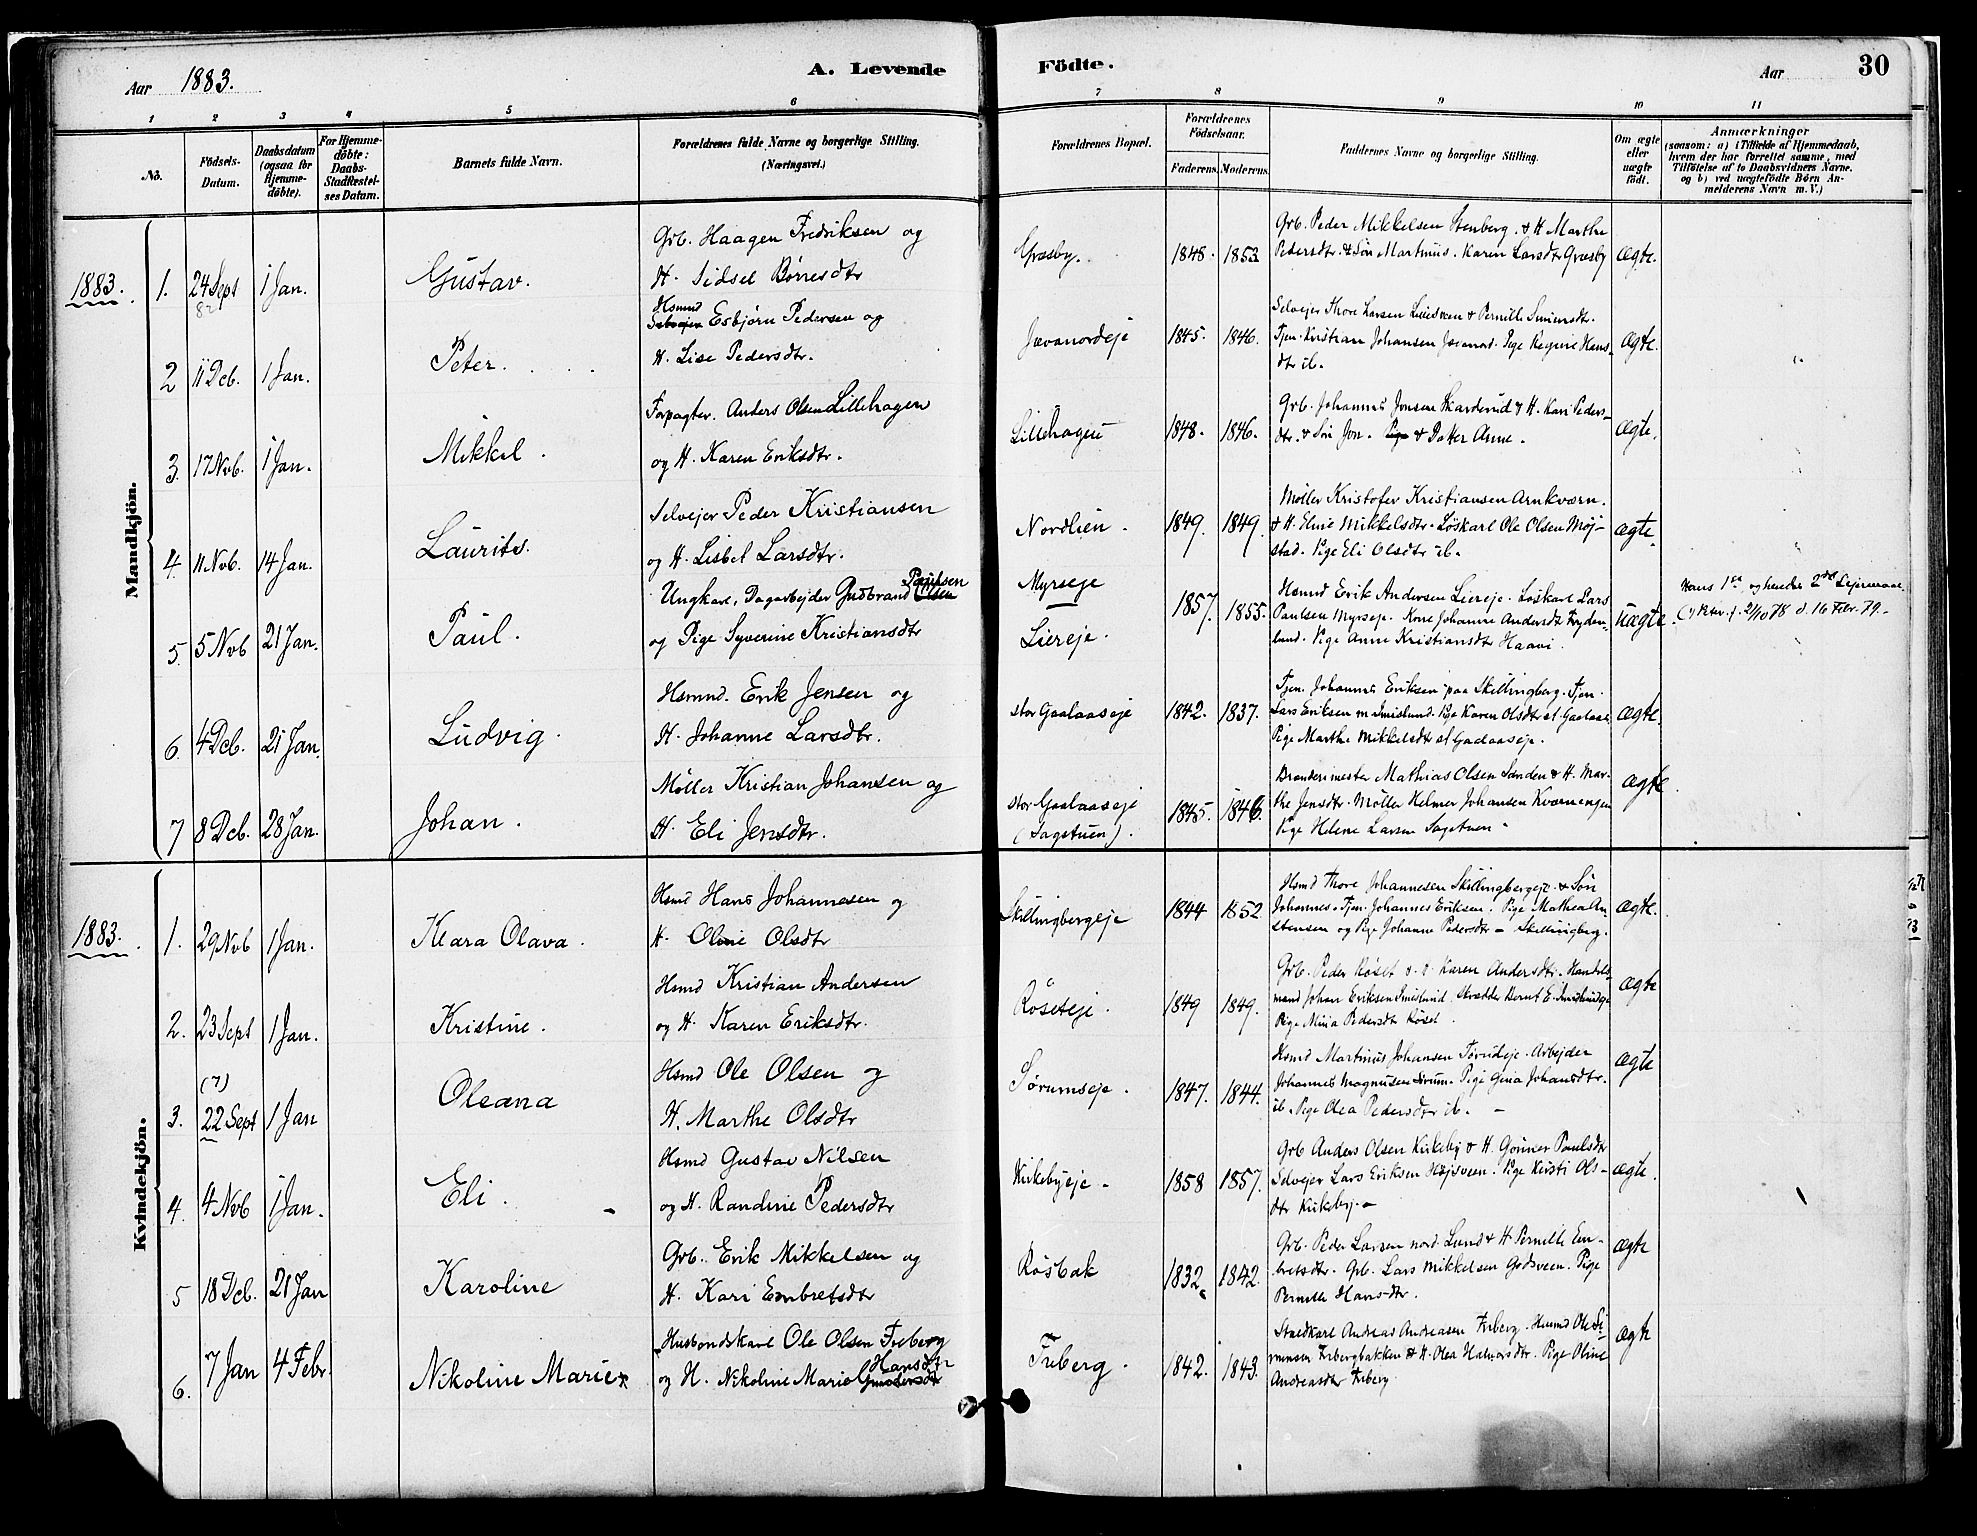 Aar 1883.
A. Levende Födte.
Aar
30
1 2 3 4 5 6 7 8 9 10 11
No.
Födsels-Datum.
Daabsdatum (ogsaa for Hjemmedöbte).
For Hjemmedöbte: Daabs-Stadfæstelses Datum.
Barnets fulde Navn.
Forældrenes fulde Navne og borgerlige Stilling. (Næringsvei.)
Forældrenes Bopæl.
Forældrenes Födselsaar.
Faderens. Moderens.
Faddernes Navne og borgerlige Stilling.
Om ægte eller uægte født.
Anmærkninger
(saasom: a) i Tilfælde af Hjemmedaab,
hvem der har forrettet samme, med
Tilföielse af to Daabsvidners Navne,
og b) ved uægtefödte Börn Anmelderens Navn m. V.)
Mandkjön.
1883. 1. 24 Sept 82 1 Jan. Gustav.
Grb. Haagen Fredriksen og
H. Sidsel Børresdtr
Græsby. 1848. 1853
Grb. Peder Mikkelsen Stenberg. & H Marthe
Pedersdtr. & Søn Martinus. Karen Larsdtr Græsby
ægte.
2 11 Dcb. 1 Jan. Peter.
Hsmnd Esbjørn Pedersen og
H. Lise Pedersdtr.
Jevanordeje 1845. 1846.
Selvejer Thore Larsen & Pernille Simensdtr.
Tjen. Kristian Johansen Pige Hans-
dtr ib.
ægte.
3. 17 Nvb. 1 Jan. Mikkel.
Forpagter. Anders Olsen Lillehagen
og H. Karen Eriksdtr.
Lillehagen 1848. 1846.
Grb. Johannes Jonsen Skarderud & H. Kari Peders-
dtr. & Søn Jon. Pige & Datter Anne.
ægte.
4. 11 Nvb. 14 Jan. Laurits.
Selvejer Peder Kristiansen
og H. Lisbet Larsdtr.
Nordlien. 1849. 1849.
Møller Kristofer Kristiansen Arnkværn.
& H. Eline Mikkelsdtr. Løskarl Ole Olsen Møj-
stad. Pige Eli Olsdtr ib.
ægte.
5. 5 Nvb 21 Jan. Paul.
Ungkarl, Dagarbejder Gudbrand Paulsen Olsen
og Pige Syverine Kristiansdtr
Myrseje
Liereje. 1857. 1855.
Hsmnd Erik Andersen Liereje. Løskarl Lars
Paulsen Myrseje. Kone Johanne Andersdtr Fryden-
lund. Pige Anne Kristiansdtr Haavi.
uægte.
Hans 1ste og hendes 2det Lejermaal.
2/10 78 d. 16 Febr. 79.
6 4 Dcb. 21 Jan. Ludvig.
Hsmnd. Erik Jensen og
H. Johanne Larsdtr.
stor Gaalaaseje 1842. 1837.
Tjen. Johannes Eriksen paa Skillingberg. Tjen.
Lars Eriksen m Imislund. Pige Karen Olsdtr st. Gaalaas
Pige Marthe Mikkelsdtr st Gaalaaseje.
ægte.
7 8 Dcb. 28 Jan. Johan.
Møller Kristian Johansen og
H. Eli Jensdtr.
stor Gaalaaseje
(Sagstuen). 1845. 1846.
Brænderimester Mathias Olsen Sanden & H. Mar-
the Jensdtr. Møller Helmer Johansen Kværnengen
Pige Helene Larsen Sagstuen
ægte.
Kvindekjön.
1883. 1. 29 Nvb 1 Jan. Klara Olava.
Hsmd Hans Johannesen og
H. Oline Olsdtr
Skillingbergeje 1844 1852
Hsmd Thore Johannesen Skillingbergeje. & Søn
Johannes. Tjen. Johannes Eriksen. Pige Mathea An-
stensen og Pige Johanne Pedersdtr – Skillingberg.
ægte.
2. 23 Sept 1 Jan. Kristine.
Hsmd Kristian Andersen
og H. Karen Eriksdtr.
Røseteje. 1849 1849.
Grb. Peder Røset & H. Karen Andersdtr. Handels-
mand Johan Eriksen Imislund. Skrædder Bernt E. Imislund
Pige Mina Pedersdtr Røset.
ægte
3. (7) 22 Sept 1 Jan Oleana
Hsmd Ole Olsen og
H. Marthe Olsdtr
Sørumseje. 1847. 1844.
Hsmd Martinus Johansen Tørudeje. Arbejder
Johannes Magnusen Sørum. Pige Gina Johansdtr.
ib. Pige Olea Pedersdtr ib. –
ægte
4. 4 Nvb 1 Jan. Eli.
Hsmd Gustav Nilsen
og H. Randine Pedersdtr
Kirkebyeje 1858 1857.
Grb Anders Olsen Kirkeby & H. Gunner Paulsdtr
Selvejer Lars Eriksen Højsveen. Pige Kirsti Ols-
dtr Kirkebyj.
ægte.
5 18 Dcb. 21 Jan Karoline
Grb. Erik Mikkelsen og
H. Kari Embretsdtr
Røsbak 1832 1842.
Grb. Peder Larsen nord. Lund & H Pernille Em-
bretsdtr. Grb. Lars Mikkelsen Godsveen. Pige
Pernille Hansdtr.
ægte
6. 7 Jan 4 Febr. Nikoline Marie
Husbondskarl Ole Olsen Freberg
og H. Nikoline Marie Hansdtr
Freberg. 1842. 1843.
Staldkarl Andreas Andreasen Freberg. Husmd Ole Si-
mensen Frebergbakken & H. Olea Halvorsdtr. Pige Oline
Andreasdtr Freberg
ægte